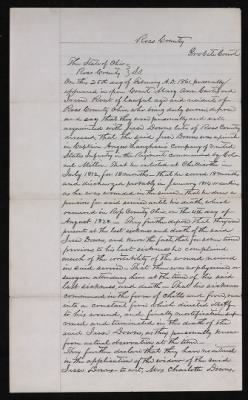 Ross County
Probate Court
The State of Ohio
Ross County } SS
On this 25th day of February A.D. 1861 personally
appeared in open Court Mary Ann and
Jesse Rout of lawful age and residents of
Ross County Ohio who being duly sworn on oath
and say that they were personally and well
acquainted with Jesse Downs late of Ross County
deceased, That the said Jesse Downs was a private
in Captain Angus Langham's Company of United
States Infantry in the Regiment commanded by Col
onel Miller. That he enlisted at Chillicothe
July 1812 for 18 months that he served 18 months
and discharged probably in January 1814
as he was wounded in the that he drew a
pension for said service until his death which
occurred in Ross County Ohio on the 4th day of
August 1828. They further depose that they were
present at the last sickness and death of the said
Jesse Downs, and know the fact that for some time
previous to his last sickness he complained
much of the of the wound received
in said service. That there was no physician or
surgeon attending him at the time of his said
last sickness and death. That his sickness
commenced in the form of Chills and fever
with a constant pain which directed
to his wound, and finally mortification
ensued and terminated in the death of the
said Jesse Downs, as they personally know
from actual observation at the time.
They further declare that they have no interest
in the application of the widow of the said
Jesse Downs to wit, Mrs Charlotte Downs.